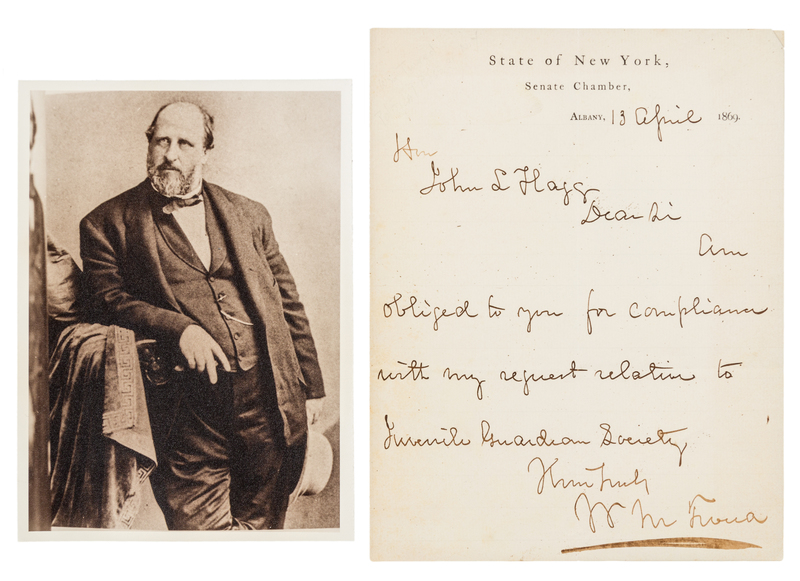 State of New York,
Senate Chamber,
Albany, 13 April 1869.
Hon
John L Flagg
Dear Si
Am
obliged to you for compliance
with my request relative to
Juvenile Guardian Society
W M